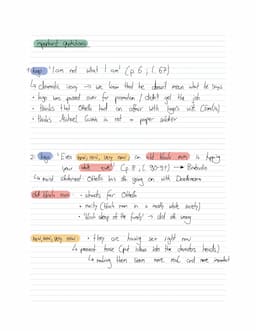 important Quotations
1. Iago 'I am not what I am' (p 6, l 67)
↳ dramatic irony → we know that he doesnt mean what he says
• Iago was passed over for promotion / didn't get the job
• thinks that Othello had an affair with Iago's wife (Emilia)
• thinks Michael Cassio is not a proper soldier
2. Iago 'Even now, now, very now an old black ram is tupping
your white ewe' (p 8, l 90-91) → Brabantio
↳ racist statement Othello has sth going on with Desdemona
old black ram • stands for Othello
• racist (black man in a mostly white society)
• 'black sheep of the family' → did sth wrong
now, now, very now • they are having sex right now
↳ present tense (put ideas into the characters heads)
↳ making them seem more real and more immediate